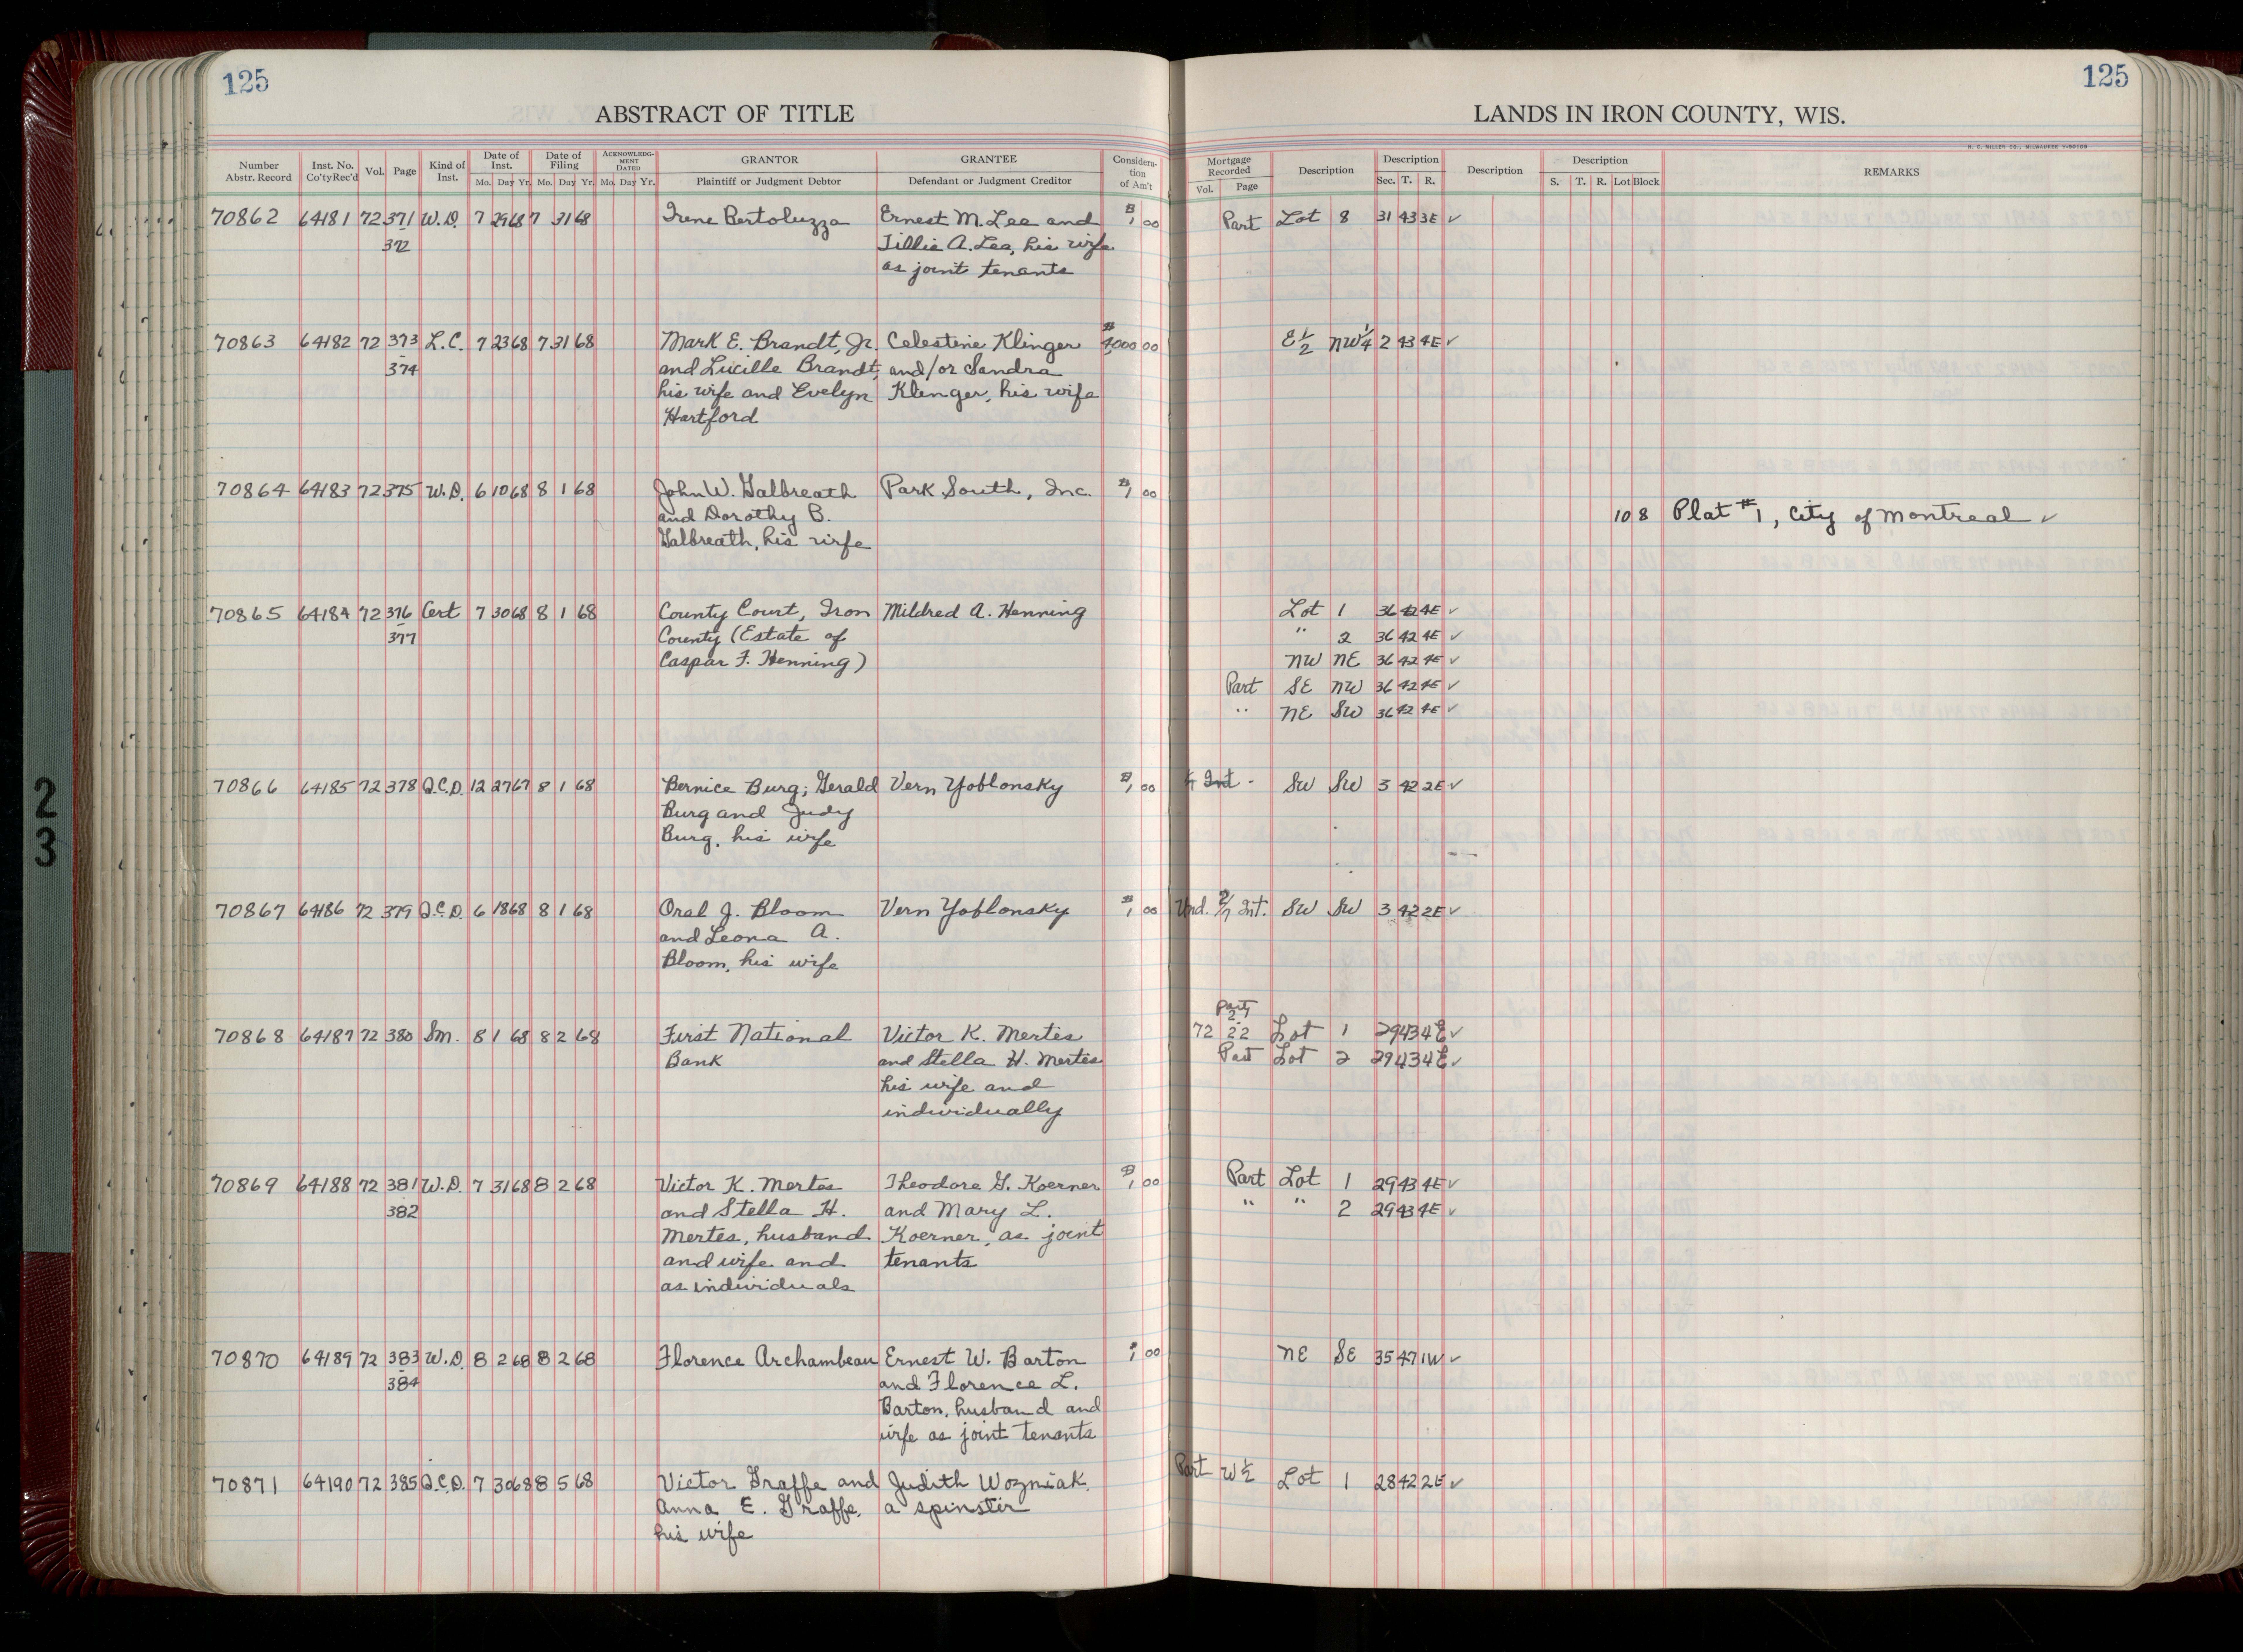 125
125
ABSTRACT OF TITLE
LANDS IN IRON COUNTY, WIS.
H. C. MILLER CO., MILWAUKEE
Number Abstr. Record Inst. No. Co'ty Rec'd Vol. Page Kind of Inst. Date of Inst. Mo. Day Yr. Date of Filing Mo. Day Yr. ACKNOWLEDGMENT DATED Mo. Day Yr. GRANTOR Plaintiff or Judgment Debtor GRANTEE Defendant or Judgment Creditor Consideration of Am't Mortgage Recorded Vol. Page Description Description Sec. T. R. Description Description S. T. R. Lot Block REMARKS
70862 64181 72 371 W.D. 7 29 68 7 31 68 Irene Bertoluzza Ernest M. Lea and $1 00 Part Lot 8 31 43 3E ✓
- 372 Tillie A. Lea, his wife
as joint tenants
70863 64182 72 373 L.C. 7 23 68 7 31 68 Mark E. Brandt, Jr. Celestine Klinger $4,000 00 E½ NW¼ 2 43 4E ✓
- 374 and Lucille Brandt, and/or Sandra
his wife and Evelyn Klinger, his wife
Hartford
70864 64183 72 375 W.D. 6 10 68 8 1 68 John W. Galbreath Park South, Inc. $1 00
and Dorothy B. 10 8 Plat #1, City of Montreal ✓
Galbreath, his wife
70865 64184 72 376 Cert 7 30 68 8 1 68 County Court, Iron Mildred A. Henning Lot 1 36 42 4E ✓
- 377 County (Estate of " 2 36 42 4E ✓
Caspar F. Henning) NW NE 36 42 4E ✓
Part SE NW 36 42 4E ✓
" NE SW 36 42 4E ✓
70866 64185 72 378 Q.C.D. 12 27 67 8 1 68 Bernice Burg; Gerald Vern Yoblonsky $1 00 Int - SW SW 3 42 2E ✓
Burg and Judy
Burg, his wife
70867 64186 72 379 Q.C.D. 6 18 68 8 1 68 Oral J. Bloom Vern Yoblonsky $1 00 Und. 2/7 Int. SW SW 3 42 2E ✓
and Leona A.
Bloom, his wife
Part
70868 64187 72 380 Sm. 8 1 68 8 2 68 First National Victor K. Mertes 72 21 - 22 Lot 1 29 43 4E ✓
Bank and Stella H. Mertes Part Lot 2 29 43 4E ✓
his wife and
individually
70869 64188 72 381 W.D. 7 31 68 8 2 68 Victor K. Mertes Theodore G. Koerner $1 00 Part Lot 1 29 43 4E ✓
- 382 and Stella H. and Mary L. " " 2 29 43 4E ✓
Mertes, husband Koerner, as joint
and wife and tenants
as individuals
70870 64189 72 383 W.D. 8 2 68 8 2 68 Florence Archambeau Ernest W. Barton $1 00 NE SE 35 47 1W ✓
- 384 and Florence L.
Barton, husband and
wife as joint tenants
70871 64190 72 385 Q.C.D. 7 30 68 8 5 68 Victor Graffe and Judith Wozniak, Part W½ Lot 1 28 42 2E ✓
Anna E. Graffe, a spinster
his wife
2
3